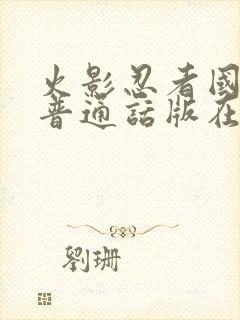 火影忍者國
普通話版在
劉珊